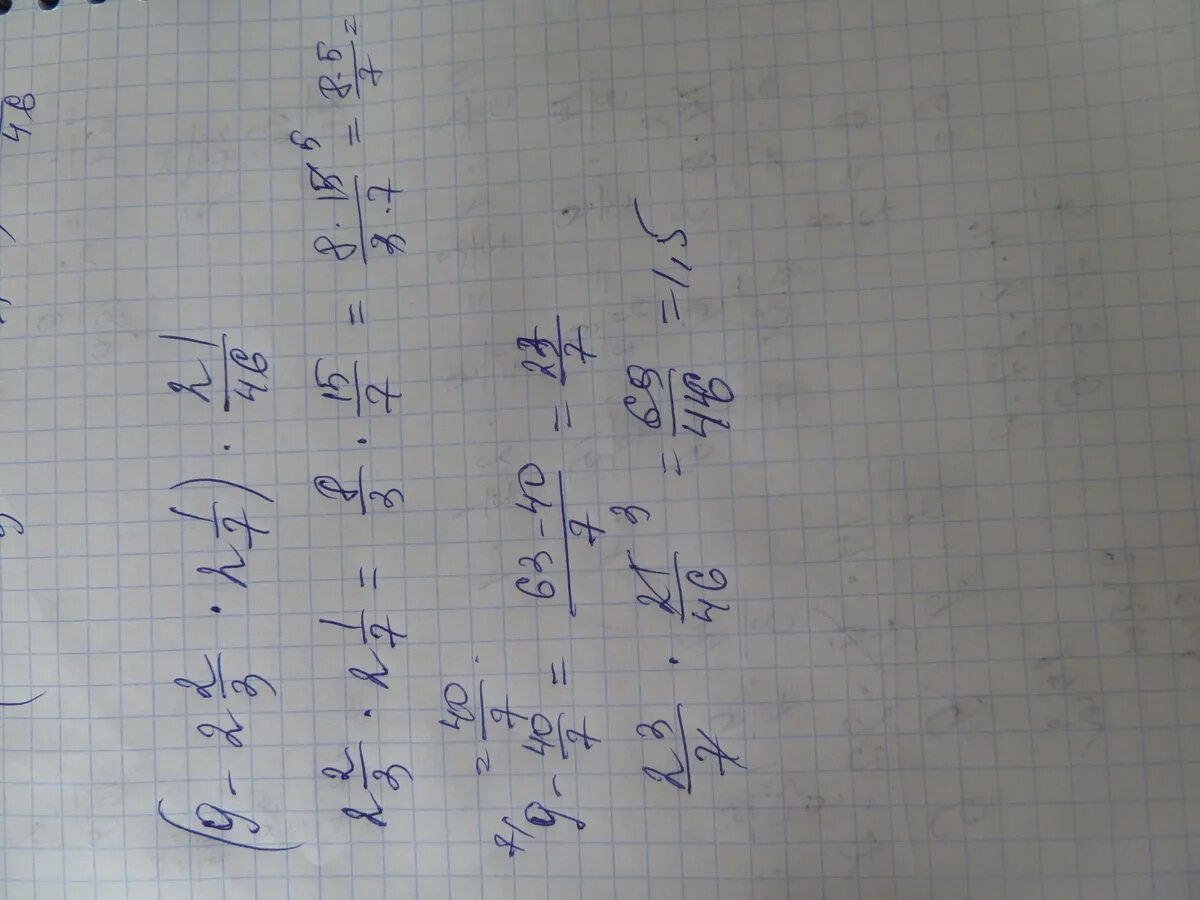 46
(9 - 2 2/3 · 2 1/7) · 21/46
2 2/3 · 2 1/7 = 8/3 · 15/7 = 8·15 5/3·7 = 8·5/7 =
= 40/7
7/ 9 - 40/7 = 63-40/7 = 23/7
23/7 · 21 3/46 = 69/46 = 1,5